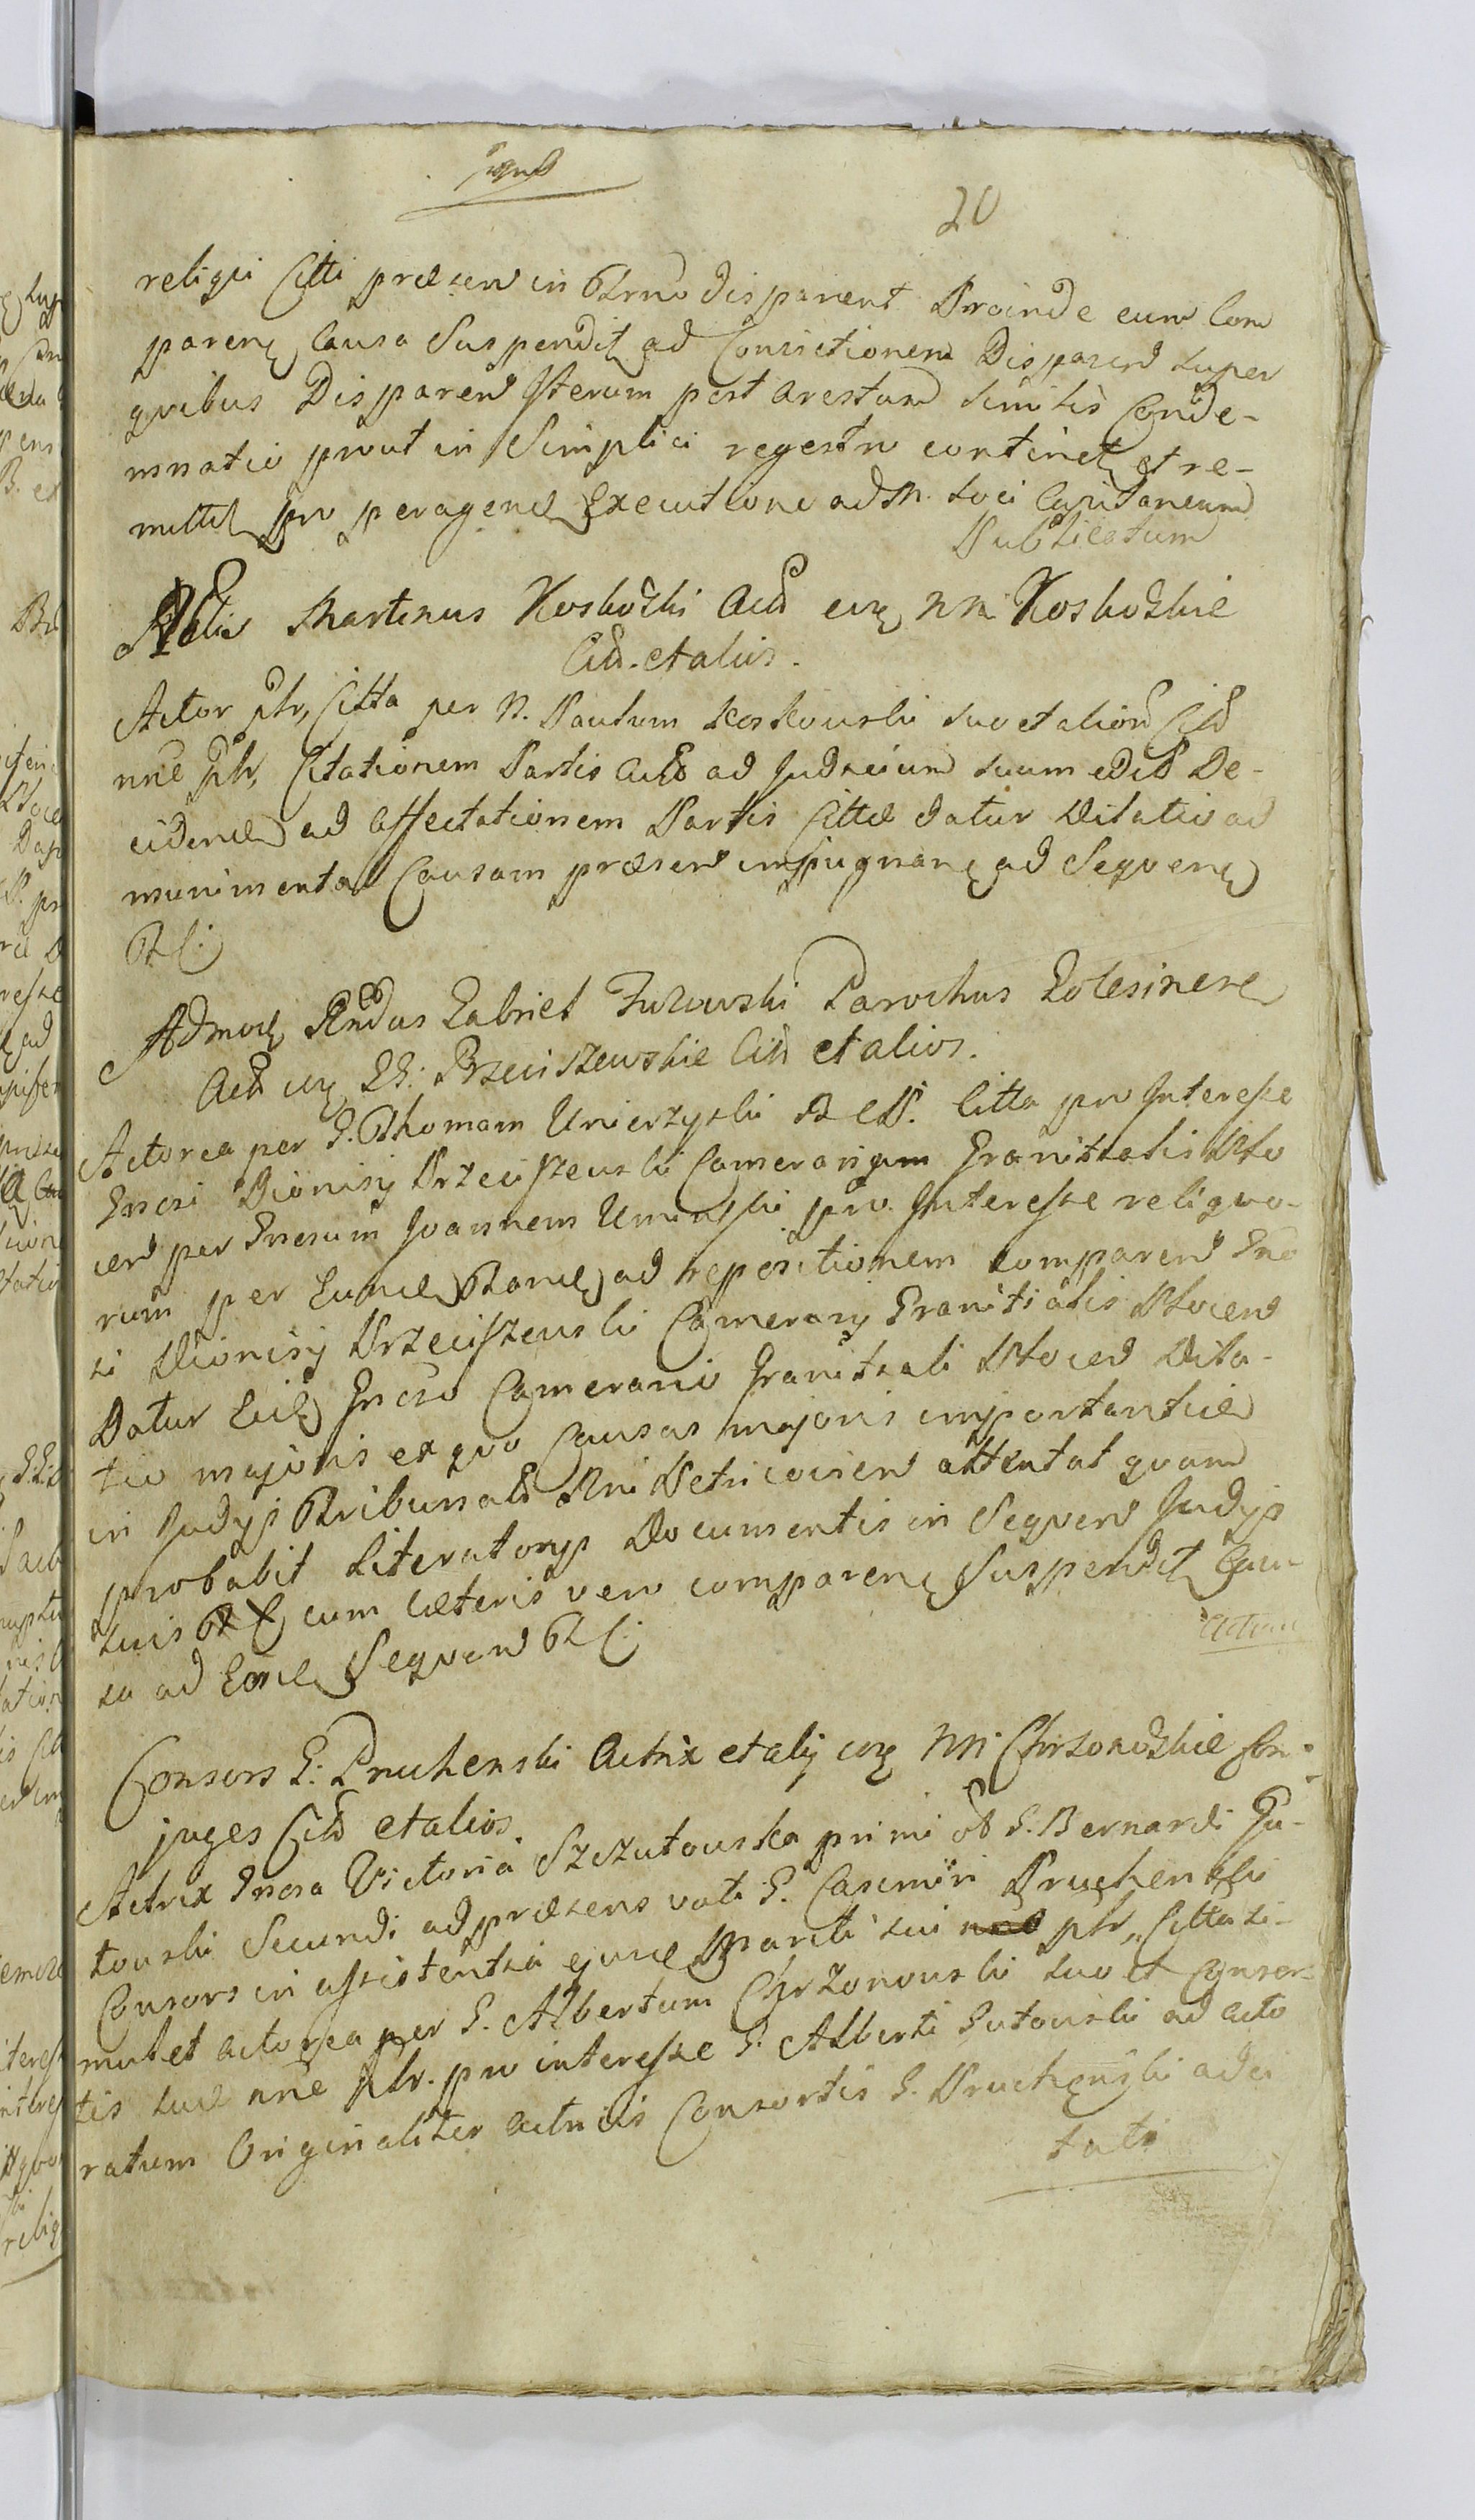 20
religui Citti præsen in Trno disparent Proinde cum Com
paren Causa Suspendit ad Convictionem Disparen super
quibus Disparen Iterum post arestum similis Conde-
mnatio prout in Simplici regestro continet et re-
mittit pro peragend Executione ad N. loci Capitaneum
Publicatum
Nblis Martinus Koskowski Act cuq NN Koskowskie
Citt. et alios.
Actor pltr, Citta per N. Paulum Koskouski suo et alior Citt
nne pltr, Citationem Partis Act ad Judicium suum edit De-
cidend ad affectationem Partis Cittæ datur Dilatio ad
munimenta Causam præsen impugnan ad Sequen
TC:
Admod Rndus Gabriel Zulowski Parochus Golesinen
Act cuq GG: Przeciszewskie Citt et alios.
Actorea per G. Thomam Unierzyski B C P. Citta pro Interesse
Gnosi Dionisij Przeciszeuski Camerarium Granitialis Plo
cen per Gnosum Joannem Uminski pro Interesse reliquo-
rum per Eund Tand ad repositionem comparen Gno
si Dionisij Przeciszeuski Camerarij Granitialis Plocen
Datur Eid Gnoso Camerario Granitiali Plocen Dila-
tio majoris ex quo Causas majoris importantiæ
in Judijs Tribunalis Rni Petricovien attentat quam
probabit Literatorijs Documentis in Sequen Judijs
suis TC cum Cæteris vero comparen Suspendit Cau-
sa ad Eosd Sequen TC:
Actum
Consors G: Pruchenski Actrix et alij cuq NN Chrzonowskie Con-
juges Citt et alios.
Actrix Gnosa Victoria Szczutouska primi olt G. Bernardi Gu-
touski Secundi ad præsens voti G. Casimiri Pruchenski
Consors in assistentia ejusd Mariti sui pltr, Citta si-
mul et actorea per G. Albertum Chrzonouski suo et Consor-
tis suæ nne pltr. pro interesse G. Alberti Gutouski ad acto
ratum Originaliter actricis Consortis G. Pruchenski ad ci
tati